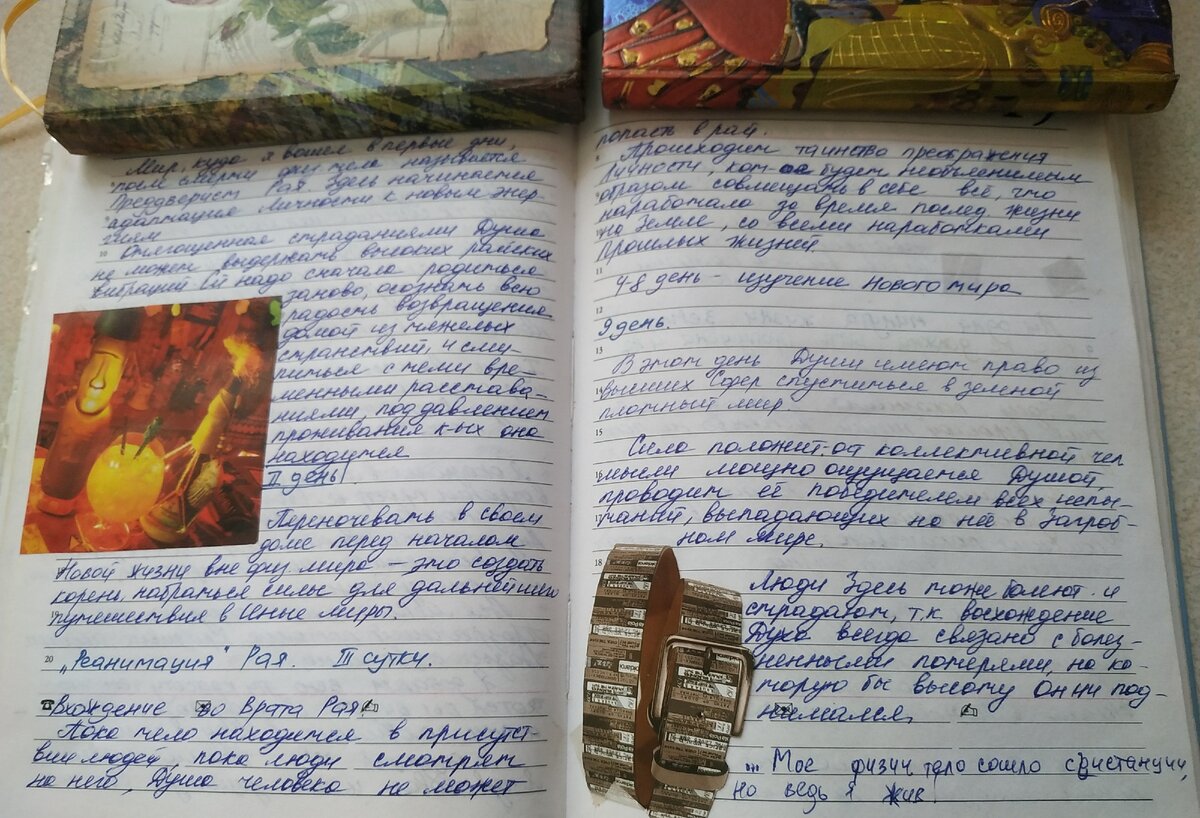 Мир, куда я вошел в первые дни,
после смерти физ тела называется
Преддверием Рая. Здесь начинается
адаптация личности к новым энер-
гиям
10 Отягощенная страданиями Душа
не может выдержать высоких райских
вибраций. Ей надо сначала родиться
заново, осознать всю
радость возвращения
домой из тяжелых
странствий, и сми-
риться с теми вре-
менными расстава-
ниями, под давлением
проживания к-ых она
находится
II день
Переночевать в своем
доме перед началом
Новой жизни вне физ. мира – это создать
корень, набраться силы для дальнейшего
путешествия в Иные миры.
20 „Реанимация" Рая. III сутки.
Вхождение во Врата Рая.
Пока тело находится в присутст-
вии людей, пока люди смотрят
на него, Душа человека не может
попасть в рай.
Происходит таинство преображения
личности, кот-ая будет необъяснимым
образом совмещать в себе всё, что
наработала за время послед жизни
на Земле, со всеми наработками
прошлых жизней.
11
4-8 день – изучение Нового мира
12
9 день.
13
В этот день Души имеют право из
14 высших Сфер спуститься в земной
плотный мир.
15
Сила положит-ой коллективной чел
16 мысли мощно ощущается Душой,
проводит её победителем всех испы-
17 таний, выпадающих на неё в Загроб-
ном мире.
18
Люди Здесь тоже болеют и
страдают, т.к. восхождение
Духа всегда связано с болез-
ненными потерями, на ка-
кую бы высоту он ни под-
нимался.
... Мое физич тело сошло с дистанции,
но ведь я жив